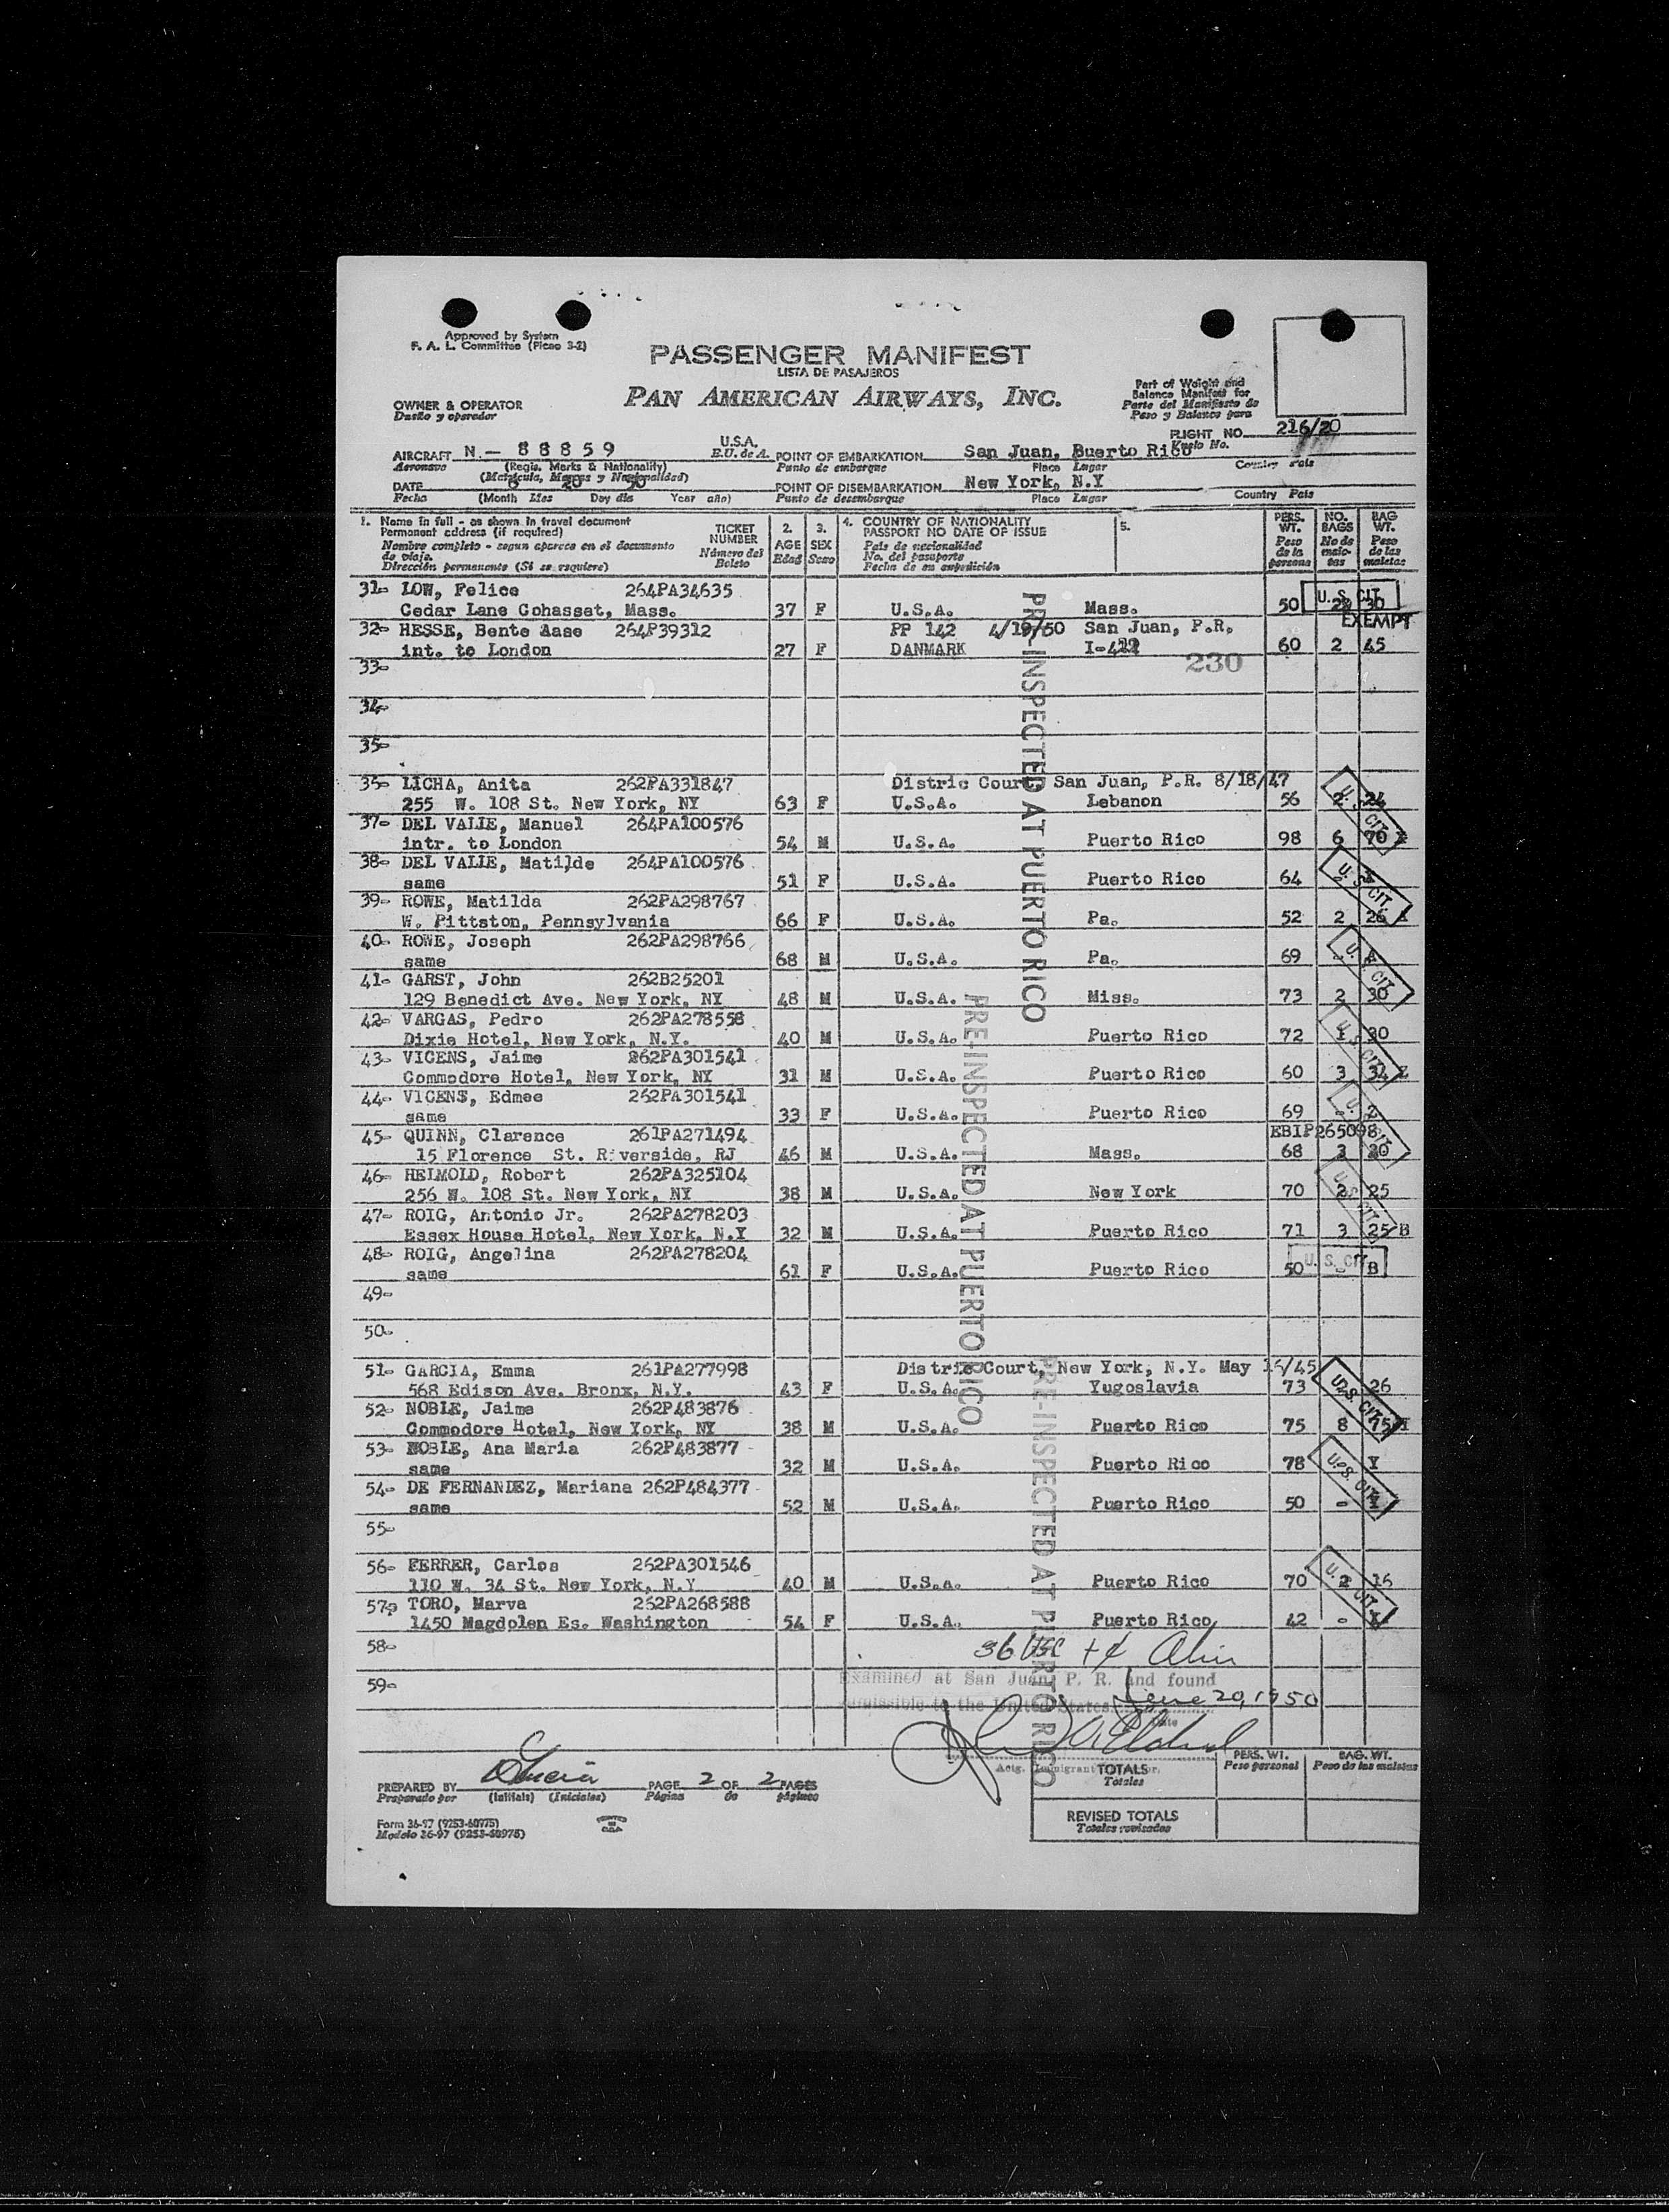 Approved by System
F. A. L. Committee (Picao 3-2)
PASSENGER MANIFEST
LISTA DE PASAJEROS
PAN AMERICAN AIRWAYS, INC.
Part of Weight and
Balance Manifest for
Parte del Manifiesto de
Peso y Balance para
OWNER & OPERATOR
Dueño y operador
FLIGHT NO. 216/20
Vuelo No.
AIRCRAFT N.- 88859
Aeronave
(Regis. Marks & Nationality)
(Matricula, Marcas y Nacionalidad)
U.S.A.
E.U. de A.
POINT OF EMBARKATION San Juan, Puerto Rico
Punto de embarque
Place Lugar
Country Pais
DATE 6 20 50
Fecha (Month Mes Day dia Year año)
POINT OF DISEMBARKATION New York, N.Y
Punto de desembarque
Place Lugar
Country Pais
1. Name in full - as shown in travel document
Permanent address (if required)
Nombre completo - segun aparece en el documento
de viaje.
Dirección permanente (Si se requiere)
TICKET NUMBER
Número del Boleto
2. AGE Edad
3. SEX Sexo
4. COUNTRY OF NATIONALITY
PASSPORT NO DATE OF ISSUE
Pais de nacionalidad
No. del pasaporte
Fecha de su expedición
5.
PERS. WT. Peso de la persona
NO. BAGS No de male- tas
BAG WT. Peso de las maletas
31- LOW, Felice 264PA34635
Cedar Lane Cohasset, Mass. 37 F U.S.A. Mass. 50 30
U.S. CIT.
EXEMPT
32- HESSE, Bente Aase 264P39312 PP 142 4/19/50 San Juan, P.R.
int. to London 27 F DANMARK 60 2 45
230
33-
34-
35-
36- LICHA, Anita 262PA331847 Distric Court San Juan, P.R. 8/18/47
255 W. 108 St. New York, NY 63 F U.S.A. Lebanon 56 2 24
37- DEL VALLE, Manuel 264PA100576
intr. to London 54 M U.S.A. Puerto Rico 98 6 70
38- DEL VALLE, Matilde 264PA100576
same 51 F U.S.A. Puerto Rico 64
39- ROWE, Matilda 262PA298767
W. Pittston, Pennsylvania 66 F U.S.A. Pa. 52 2 26
40- ROWE, Joseph 262PA298766
same 68 M U.S.A. Pa. 69
41- GARST, John 262B25201
129 Benedict Ave. New York, NY 48 M U.S.A. Miss. 73 2 30
42- VARGAS, Pedro 262PA278558
Dixie Hotel, New York, N.Y. 40 M U.S.A. Puerto Rico 72 1 30
43- VICENS, Jaime 262PA301541
Commodore Hotel, New York, NY 31 M U.S.A. Puerto Rico 60 3 34 Z
44- VICENS, Edmee 262PA301541
same 33 F U.S.A. Puerto Rico 69
45- QUINN, Clarence 261PA271494 EBIP265098
15 Florence St. Riverside, RJ 46 M U.S.A. Mass. 68 3 20
46- HEIMOLD, Robert 262PA325104
256 W. 108 St. New York, NY 38 M U.S.A. New York 70 2 25
47- ROIG, Antonio Jr. 262PA278203
Essex House Hotel, New York, N.Y 32 M U.S.A. Puerto Rico 71 3 25 B
48- ROIG, Angelina 262PA278204
same 61 F U.S.A. Puerto Rico 50 - B
U.S. CIT.
49-
50-
51- GARCIA, Emma 261PA277998 District Court, New York, N.Y. May 16/45
568 Edison Ave. Bronx, N.Y. 43 F U.S.A. Yugoslavia 73 26
52- NOBLE, Jaime 262P483876
Commodore Hotel, New York, NY 38 M U.S.A. Puerto Rico 75 8 75
53- NOBLE, Ana Maria 262P483877
same 32 M U.S.A. Puerto Rico 78 Y
54- DE FERNANDEZ, Mariana 262P484377
same 52 M U.S.A. Puerto Rico 50 -
55-
56- FERRER, Carlos 262PA301546
110 W. 34 St. New York, N.Y 40 M U.S.A. Puerto Rico 70 2 16
57- TORO, Marva 262PA268588
1450 Magdolen Es. Washington 54 F U.S.A. Puerto Rico 42 -
58-
36 USC + 4 Alien
59-
Examined at San Juan, P. R. and found
admissible to the United States June 20, 1950
PRE-INSPECTED AT PUERTO RICO
PRE-INSPECTED AT PUERTO RICO
PRE-INSPECTED AT PUERTO RICO
PREPARED BY
Preparado por (Initials) (Iniciales)
PAGE 2 OF 2 PAGES
Página de páginas
TOTALS
Totales
PERS. WT.
Peso personal
BAG. WT.
Peso de las maletas
REVISED TOTALS
Totales revisados
Form 36-97 (9253-60975)
Modelo 36-97 (9253-60975)